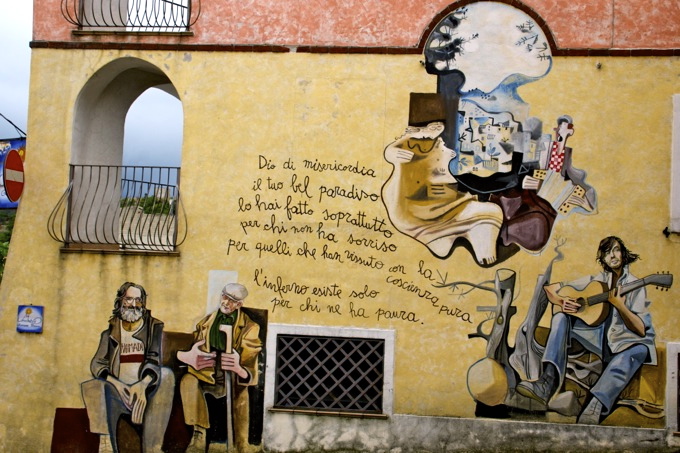 Dio di misericordia
il tuo bel paradiso
lo hai fatto soprattutto
per chi non ha sorriso
per quelli che han vissuto con la
coscienza pura
l'inferno esiste solo
per chi ne ha paura.